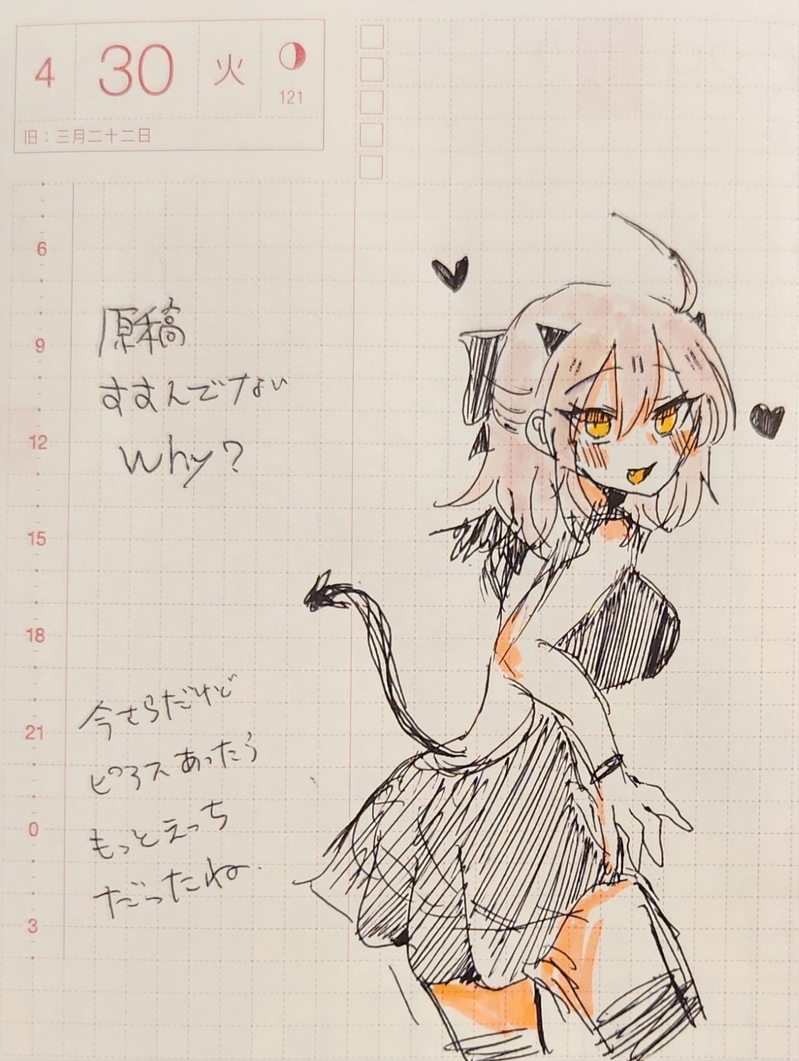 4 30 火
121
旧：三月二十二日
6
9
12
15
18
21
0
3
原稿
すすんでない
Why?
今さらだけど
ピアスあったら
もっとえっち
だったね.